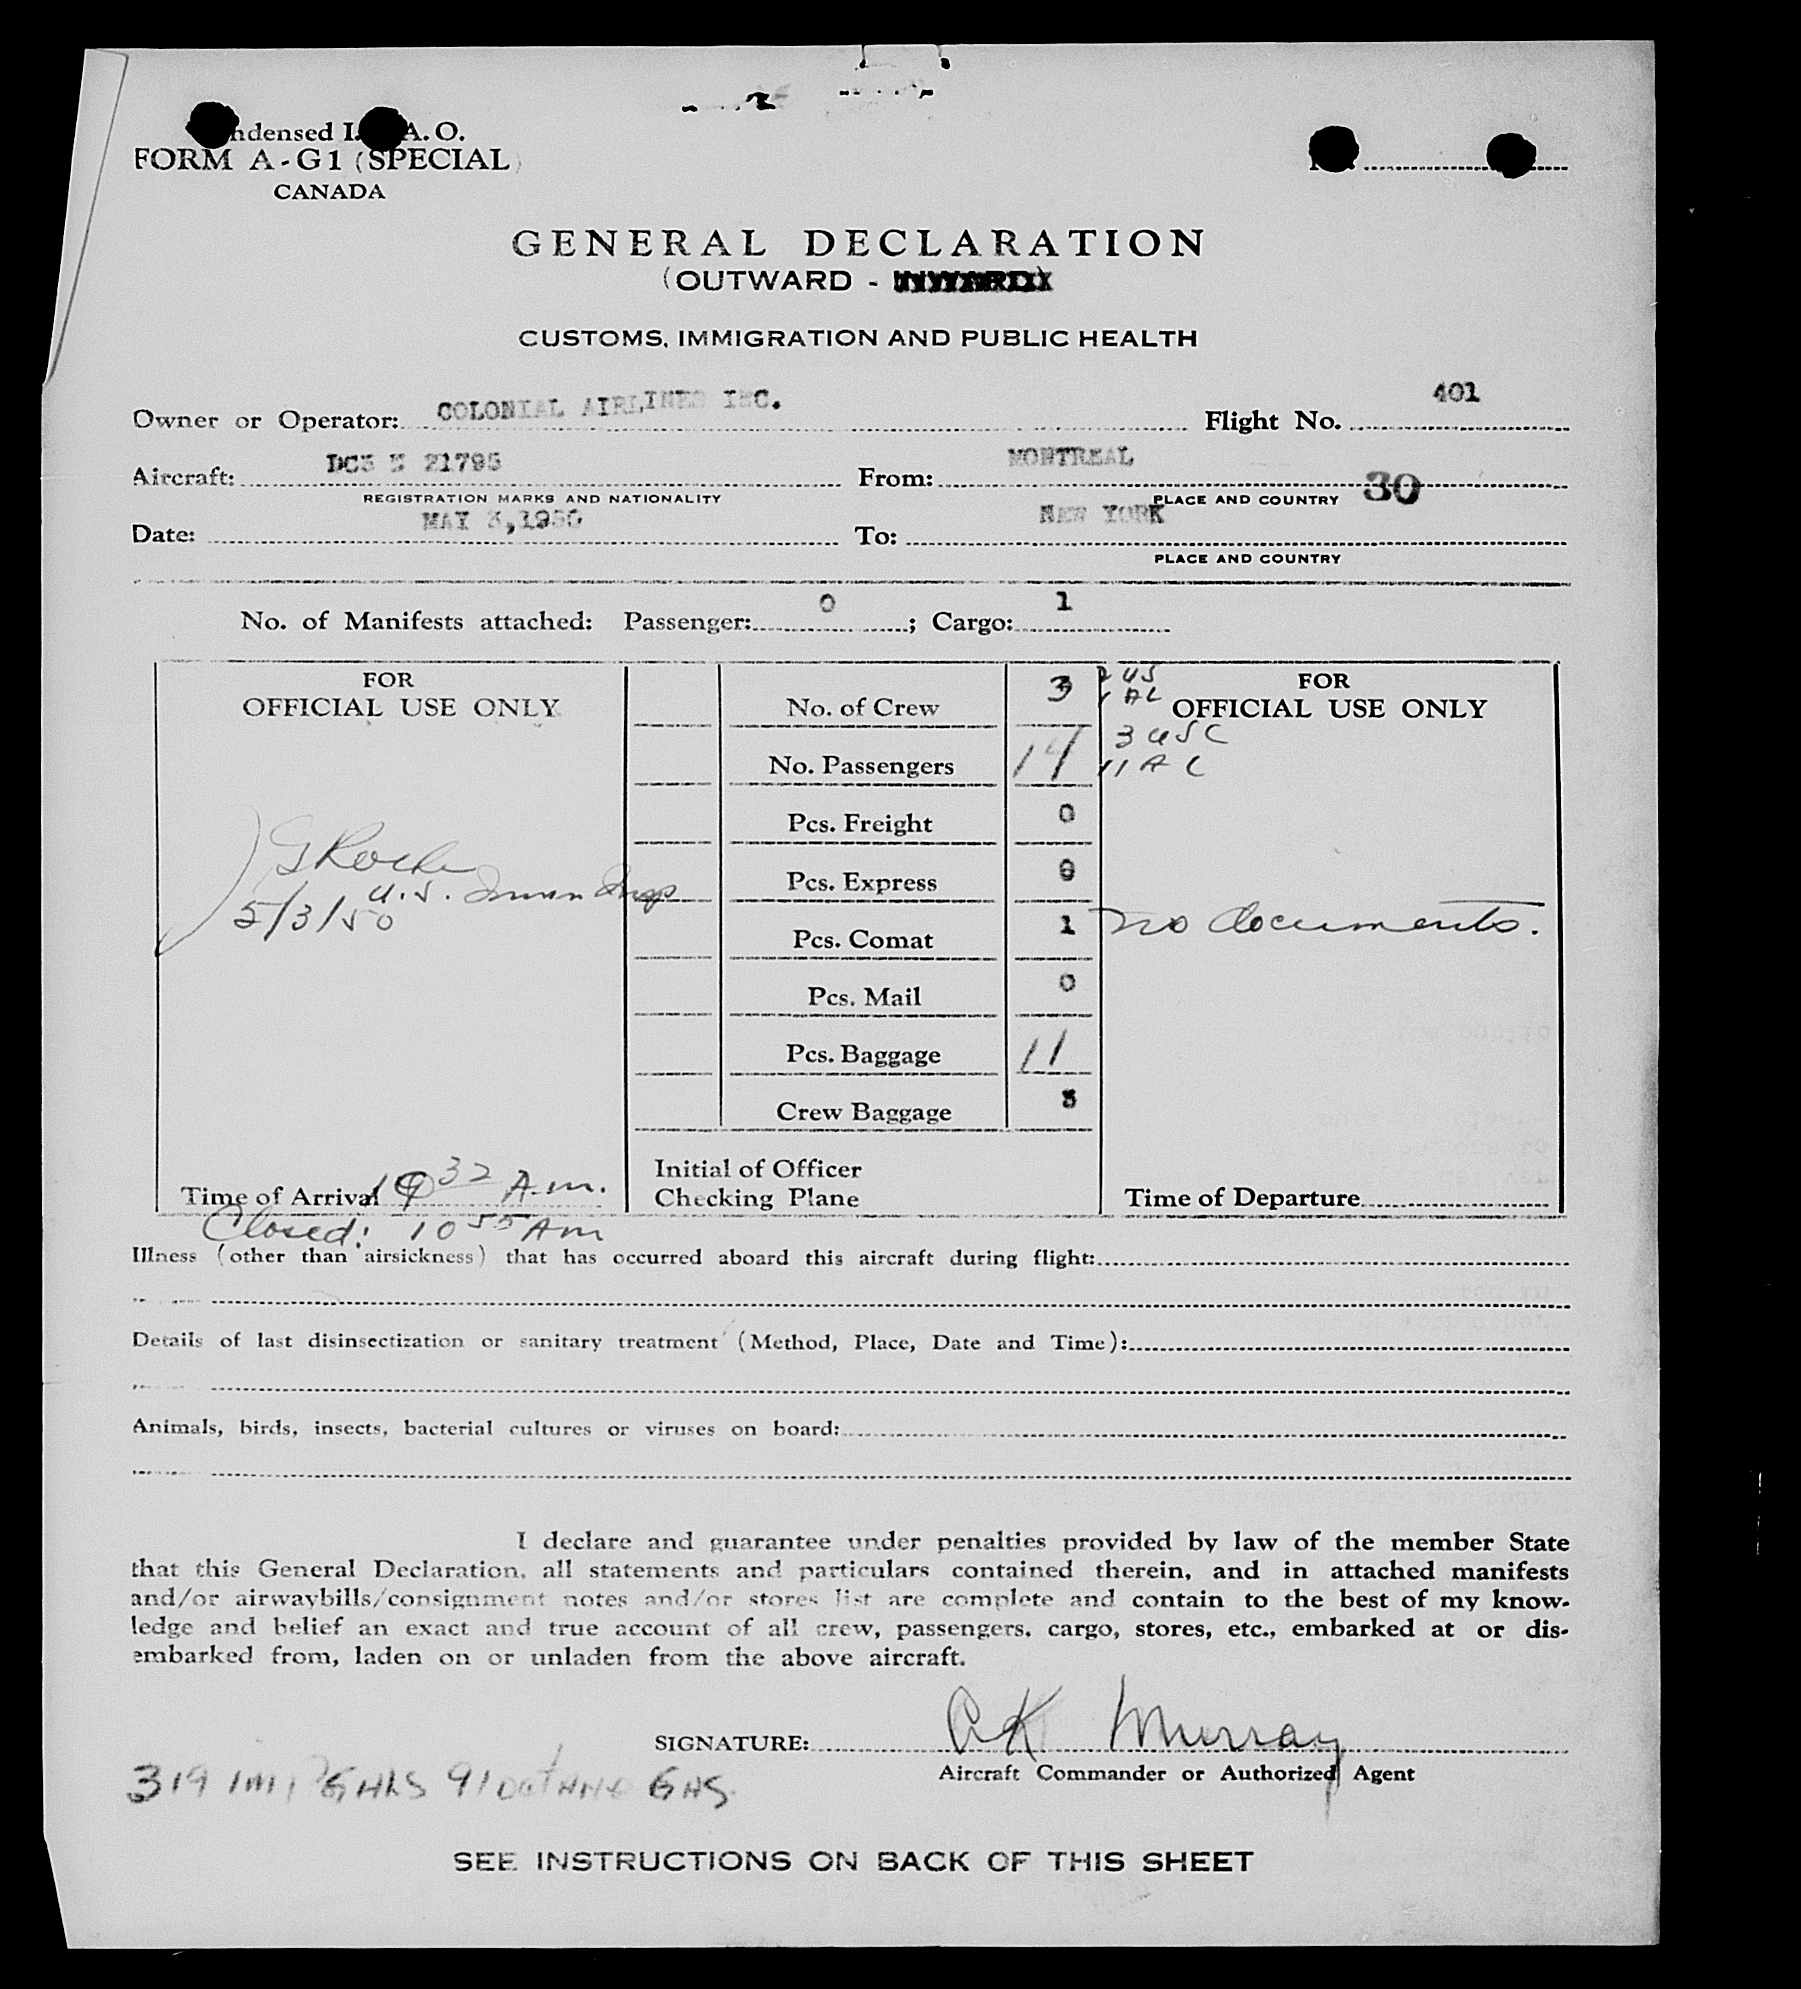 ndensed I. A. O.
FORM A-G1 (SPECIAL)
CANADA
GENERAL DECLARATION
(OUTWARD -
CUSTOMS, IMMIGRATION AND PUBLIC HEALTH
Owner or Operator: COLONIAL AIRLINES INC. Flight No. 401
Aircraft: DC3 N 21795 From: MONTREAL
REGISTRATION MARKS AND NATIONALITY PLACE AND COUNTRY 30
Date: MAY 3,1950 To: NEW YORK
PLACE AND COUNTRY
No. of Manifests attached: Passenger: 0 ; Cargo: 1
FOR
OFFICIAL USE ONLY
No. of Crew 3 2 US
1 AL
FOR
OFFICIAL USE ONLY
No. Passengers 14 3 USC
11 A L
Pcs. Freight 0
Pcs. Express 0
U.S. Immn Insp
5/3/50
Pcs. Comat 1 No documents.
Pcs. Mail 0
Pcs. Baggage 11
Crew Baggage 3
Time of Arrival 10 32 A.m.
Closed: 10 55 Am
Initial of Officer
Checking Plane
Time of Departure
Illness (other than airsickness) that has occurred aboard this aircraft during flight:
Details of last disinsectization or sanitary treatment (Method, Place, Date and Time):
Animals, birds, insects, bacterial cultures or viruses on board:
I declare and guarantee under penalties provided by law of the member State
that this General Declaration, all statements and particulars contained therein, and in attached manifests
and/or airwaybills/consignment notes and/or stores list are complete and contain to the best of my know-
ledge and belief an exact and true account of all crew, passengers, cargo, stores, etc., embarked at or dis-
embarked from, laden on or unladen from the above aircraft.
SIGNATURE: AK Murray
Aircraft Commander or Authorized Agent
319 IMP GALS 91 OCTANE GAS
SEE INSTRUCTIONS ON BACK OF THIS SHEET